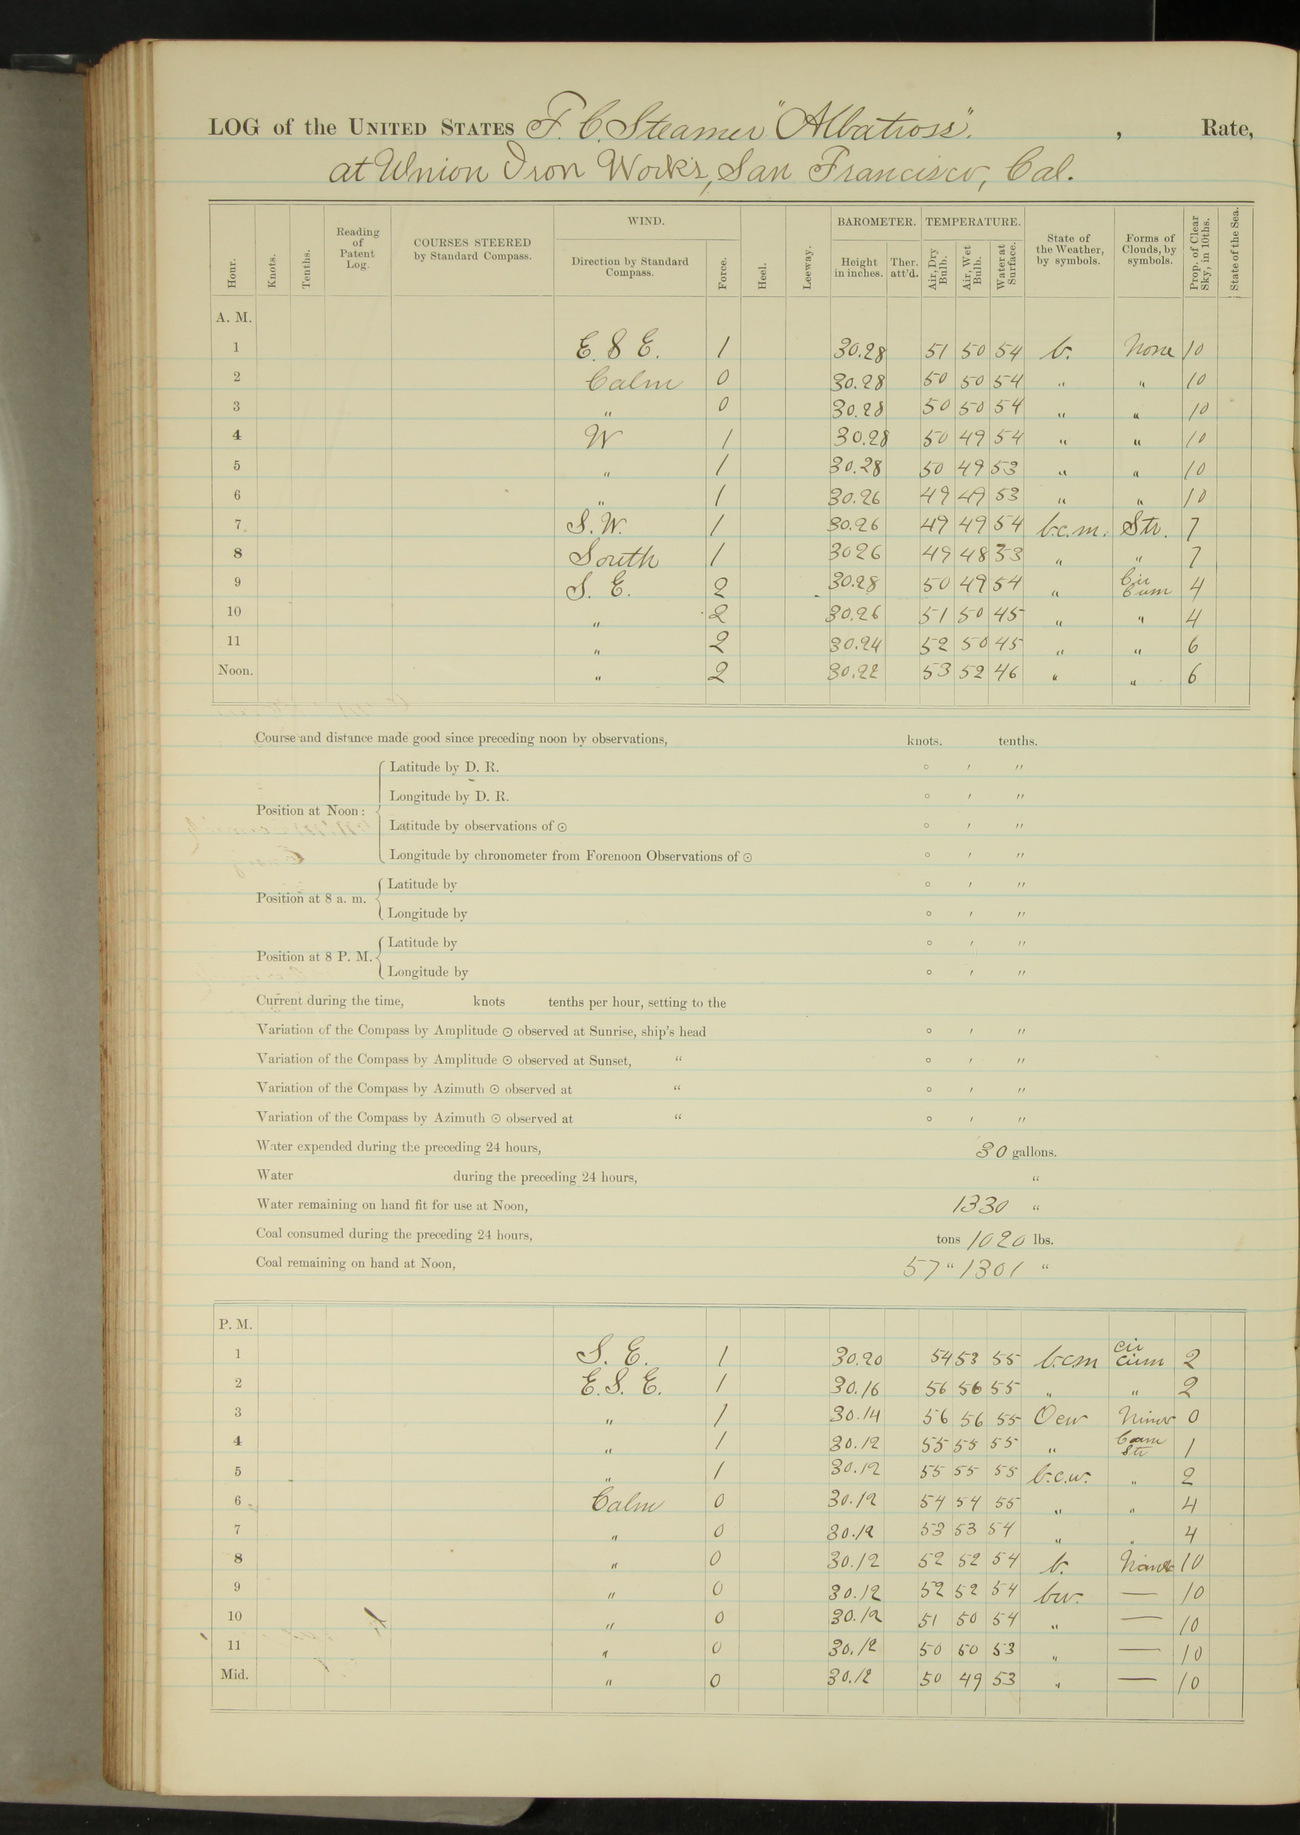 LOG of the UNITED STATES F. C. Steamer "Albatross". , Rate,
at Union Iron Works, San Francisco, Cal.
Hour. Knots. Tenths. Reading of Patent Log. COURSES STEERED by Standard Compass. WIND. Direction by Standard Compass. Force. Heel. Leeway. BAROMETER. Height in inches. Ther. att'd. TEMPERATURE. Air, Dry Bulb. Air, Wet Bulb. Water at Surface. State of the Weather, by symbols. Forms of Clouds, by symbols. Prop. of Clear Sky, in 10ths. State of the Sea.
A. M.
1 E. S E. 1 30.28 51 50 54 b. None 10
2 Calm 0 30.28 50 50 54 " " 10
3 " 0 30.28 50 50 54 " " 10
4 W 1 30.28 50 49 54 " " 10
5 " 1 30.28 50 49 53 " " 10
6 " 1 30.26 49 49 53 " " 10
7 S. W. 1 30.26 49 49 54 b.c.m. Str. 7
8 South 1 3026 49 48 53 " " 7
9 S. E. 2 30.28 50 49 54 " Cir Cum 4
10 " 2 30.26 51 50 45 " " 4
11 " 2 30.24 52 50 45 " " 6
Noon. " 2 30.22 53 52 46 " " 6
Course and distance made good since preceding noon by observations, knots. tenths.
Position at Noon: Latitude by D. R. ° ′ ″
Longitude by D. R. ° ′ ″
Latitude by observations of ☉ ° ′ ″
Longitude by chronometer from Forenoon Observations of ☉ ° ′ ″
Position at 8 a. m. Latitude by ° ′ ″
Longitude by ° ′ ″
Position at 8 P. M. Latitude by ° ′ ″
Longitude by ° ′ ″
Current during the time, knots tenths per hour, setting to the
Variation of the Compass by Amplitude ☉ observed at Sunrise, ship's head ° ′ ″
Variation of the Compass by Amplitude ☉ observed at Sunset, " ° ′ ″
Variation of the Compass by Azimuth ☉ observed at " ° ′ ″
Variation of the Compass by Azimuth ☉ observed at " ° ′ ″
Water expended during the preceding 24 hours, 30 gallons.
Water during the preceding 24 hours, "
Water remaining on hand fit for use at Noon, 1330 "
Coal consumed during the preceding 24 hours, tons 1020 lbs.
Coal remaining on hand at Noon, 57 " 1301 "
P. M.
1 S. E. 1 30.20 54 53 55 b.cm cir cum 2
2 E. S. E. 1 30.16 56 56 55 " " 2
3 " 1 30.14 56 56 55 Ocw 0
4 " 1 30.12 55 55 55 " Cum Str 1
5 " 1 30.12 55 55 55 b.c.w. " 2
6 Calm 0 30.12 54 54 55 " " 4
7 " 0 30.12 53 53 54 " " 4
8 " 0 30.12 52 52 54 b. None 10
9 " 0 30.12 52 52 54 bw. — 10
10 " 0 30.12 51 50 54 " — 10
11 " 0 30.12 50 50 53 " — 10
Mid. " 0 30.12 50 49 53 " — 10